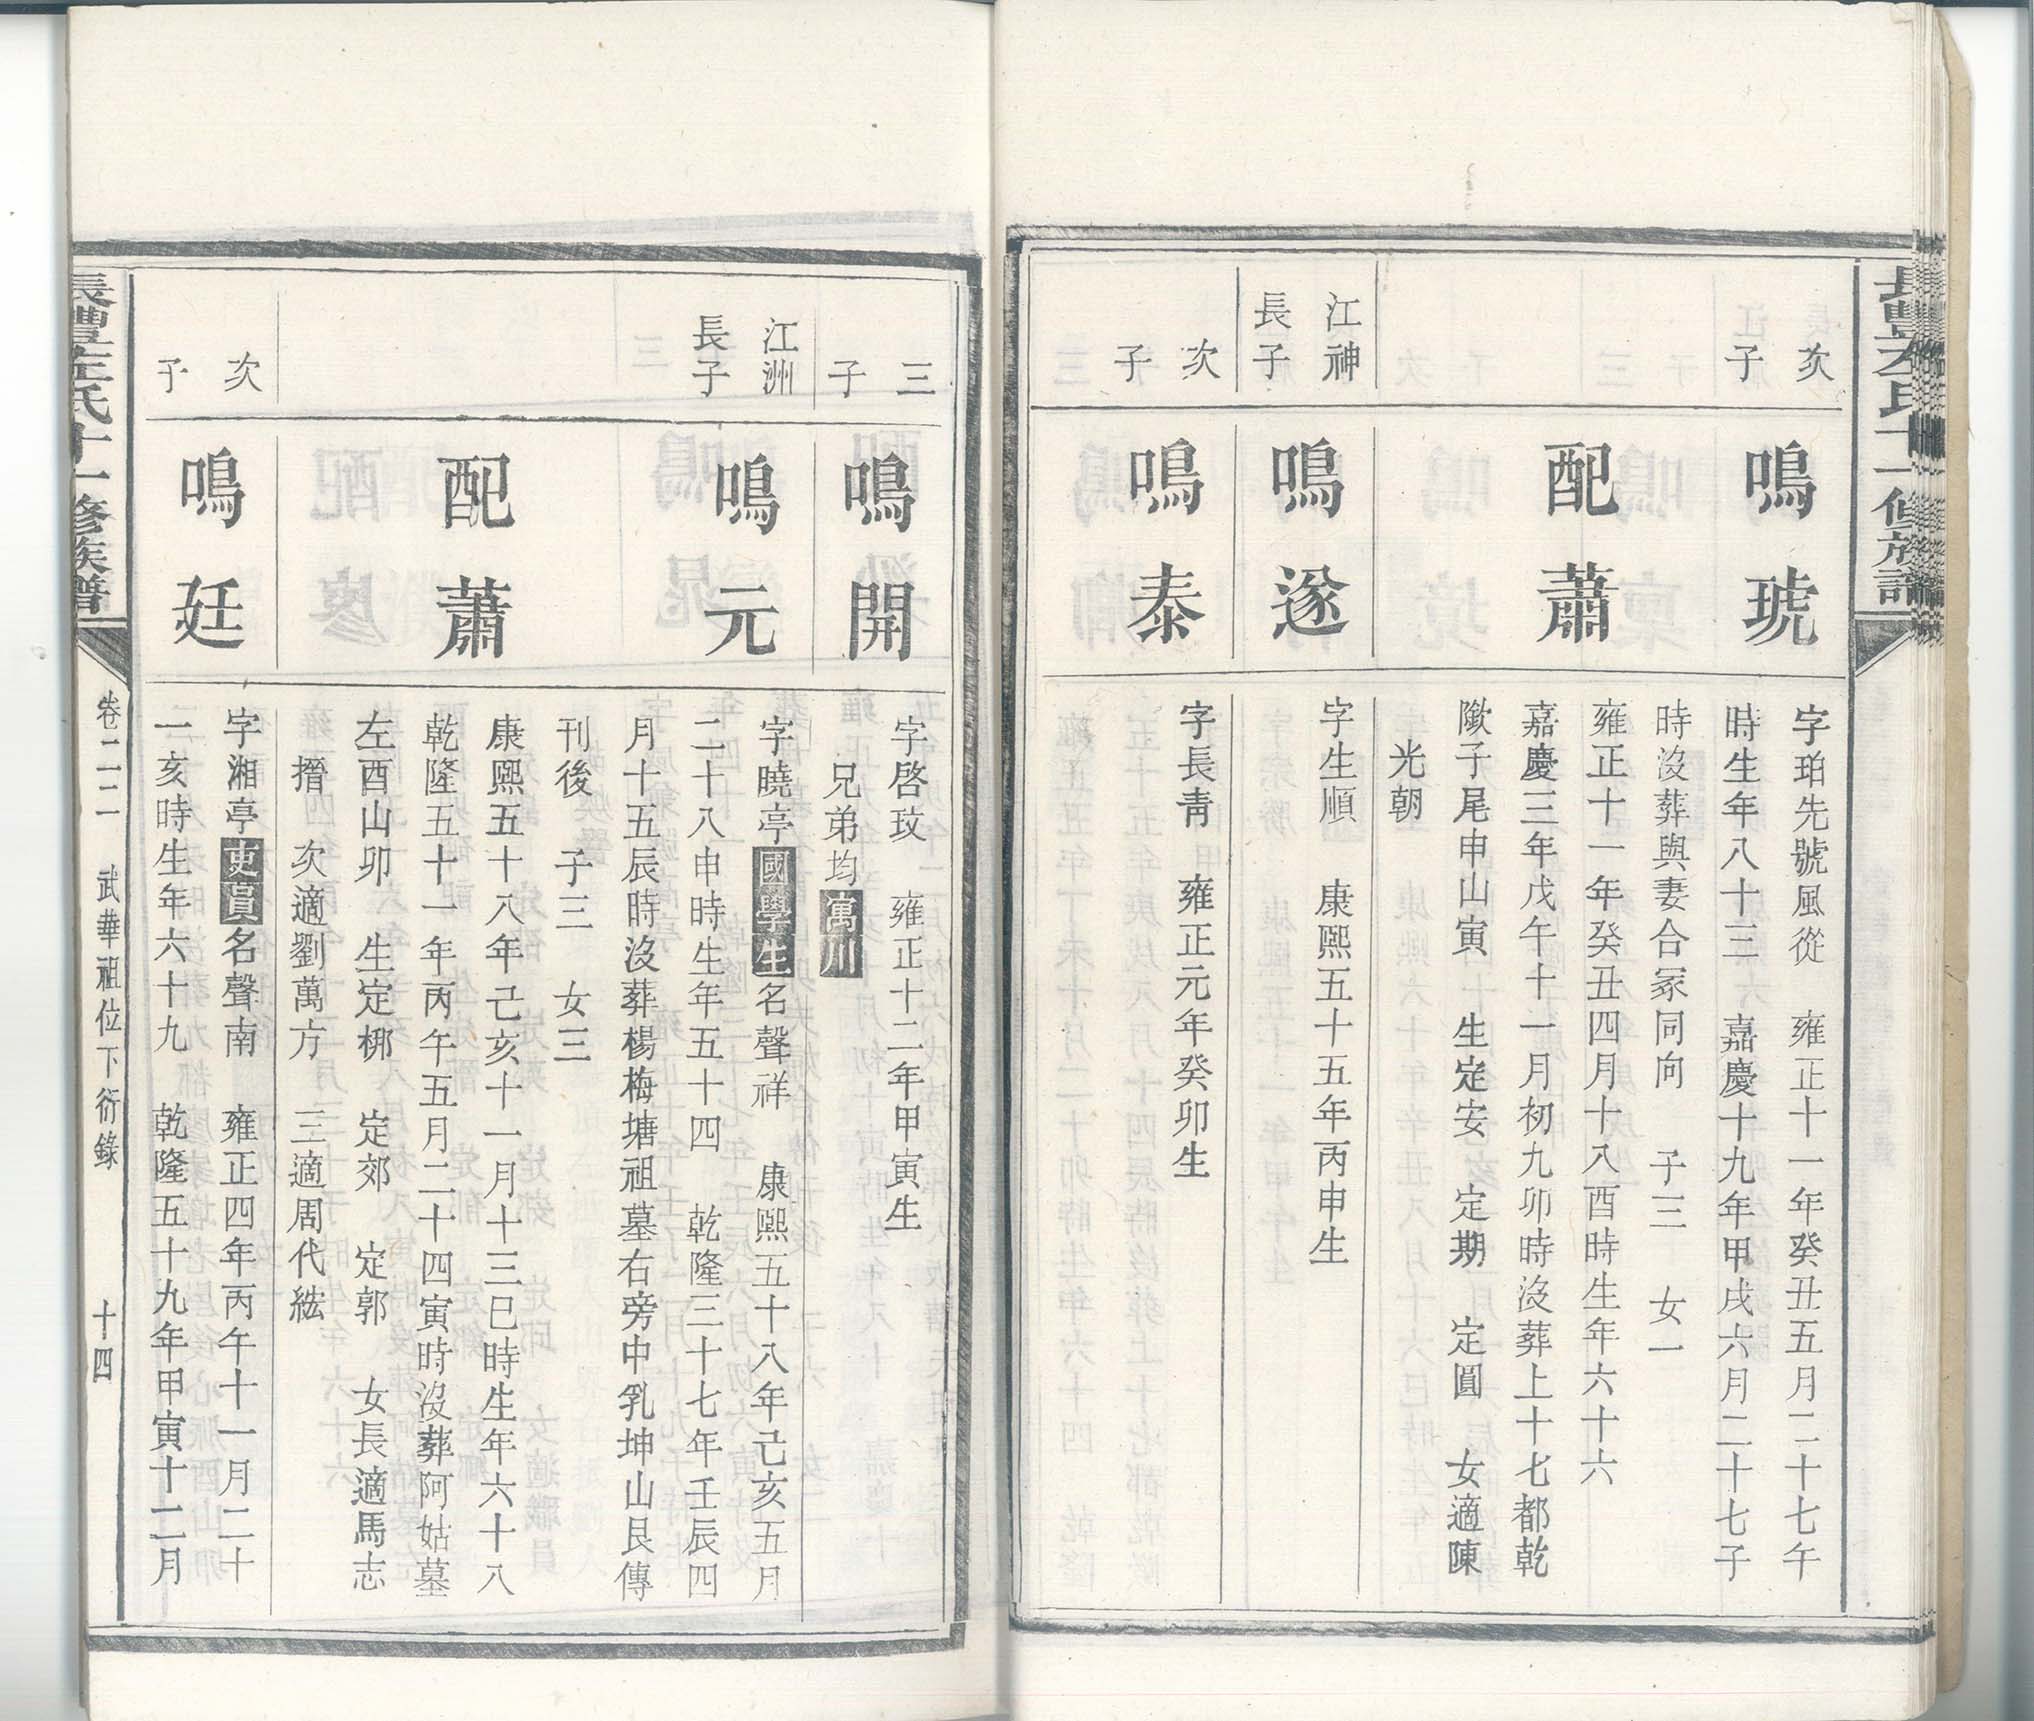 長豐左氏十一修族譜
次子
鳴琥
字珀先號風從 雍正十一年癸丑五月二十七午
時生年八十三 嘉慶十九年甲戌六月二十七子
時沒葬與妻合冢同向 子三 女一
配蕭
雍正十一年癸丑四月十八酉時生年六十六
嘉慶三年戊午十一月初九卯時沒葬上十七都乾
歘子尾申山寅 生定安 定期 定圓 女適陳
光朝
江神長子
鳴遂
字生順 康熙五十五年丙申生
次子
鳴泰
字長青 雍正元年癸卯生
三子
鳴開
字啓玟 雍正十二年甲寅生
兄弟均寓川
江洲長子
鳴元
字曉亭國學生名聲祥 康熙五十八年己亥五月
二十八申時生年五十四 乾隆三十七年壬辰四
月十五辰時沒葬楊梅塘祖墓右旁中乳坤山艮傳
刊後 子三 女三
配蕭
康熙五十八年己亥十一月十三巳時生年六十八
乾隆五十一年丙午五月二十四寅時沒葬阿姑墓
左酉山卯 生定梆 定郊 定郭 女長適馬志
搢 次適劉萬方 三適周代紘
次子
鳴廷
字湘亭吏員名聲南 雍正四年丙午十一月二十
一亥時生年六十九 乾隆五十九年甲寅十二月
長豐左氏十一修族譜
卷二二 武華祖位下衍錄 十四